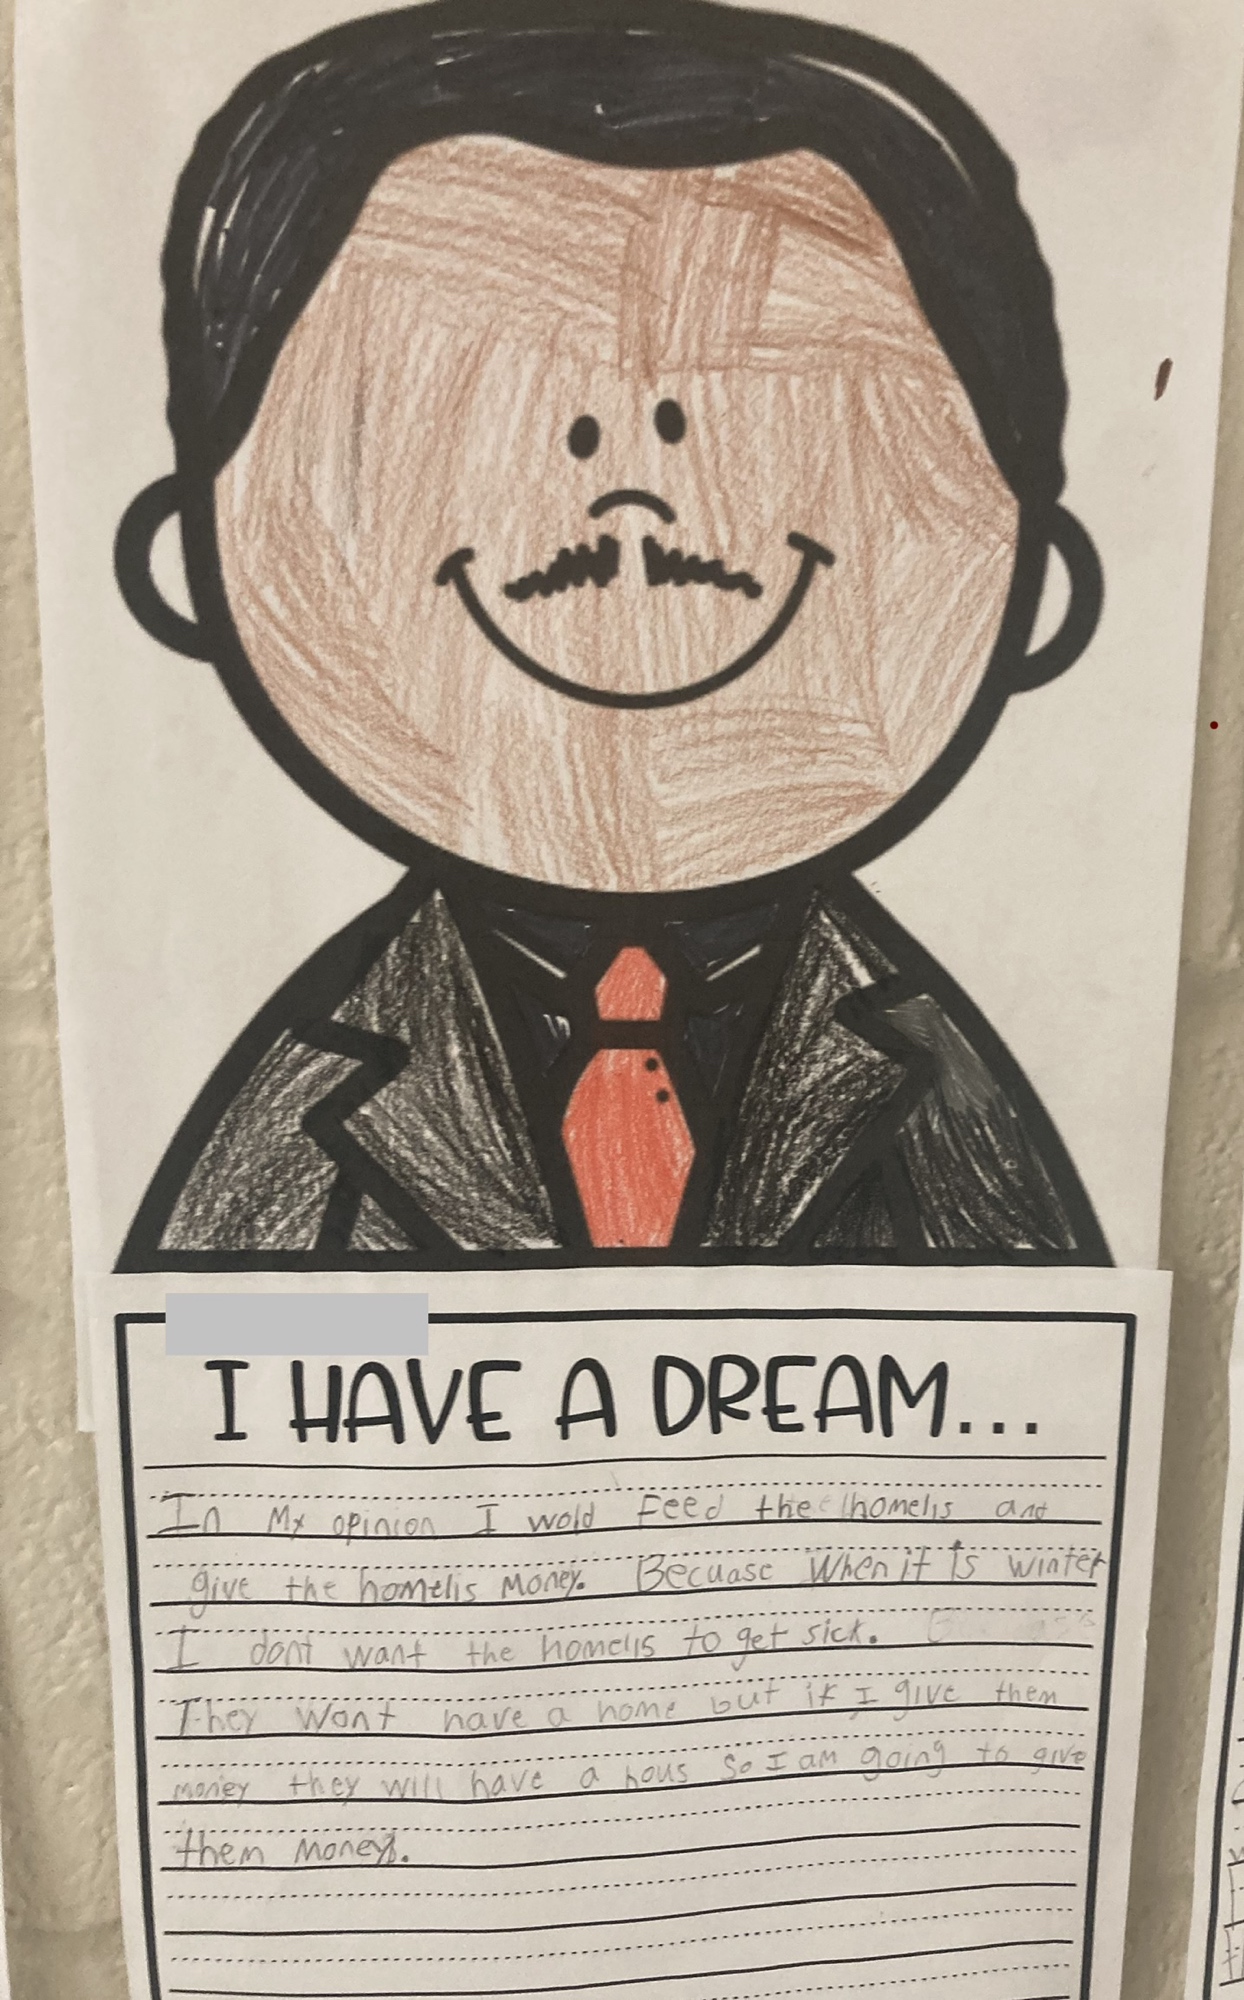 I HAVE A DREAM...
In My opinion I wold Feed the homelis and
give the homelis Money. Becuase When it is winter
I dont want the homelis to get sick.
They Wont have a home but if I give them
money they will have a hous So I am going to give
them Money.